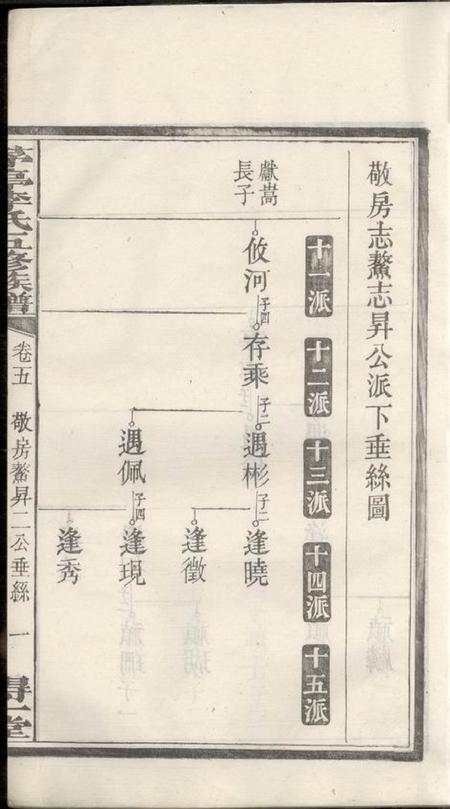 敬房志鰲志昇公派下垂絲圖
十一派
十二派
十三派
十四派
十五派
獻嵩
長子
攸河
子四
存乘
子二
遇彬
子二
逢曉
逢徵
遇佩
子四
逢現
逢秀
李氏五修族譜
卷五
敬房鰲昇二公垂絲
一
得一堂